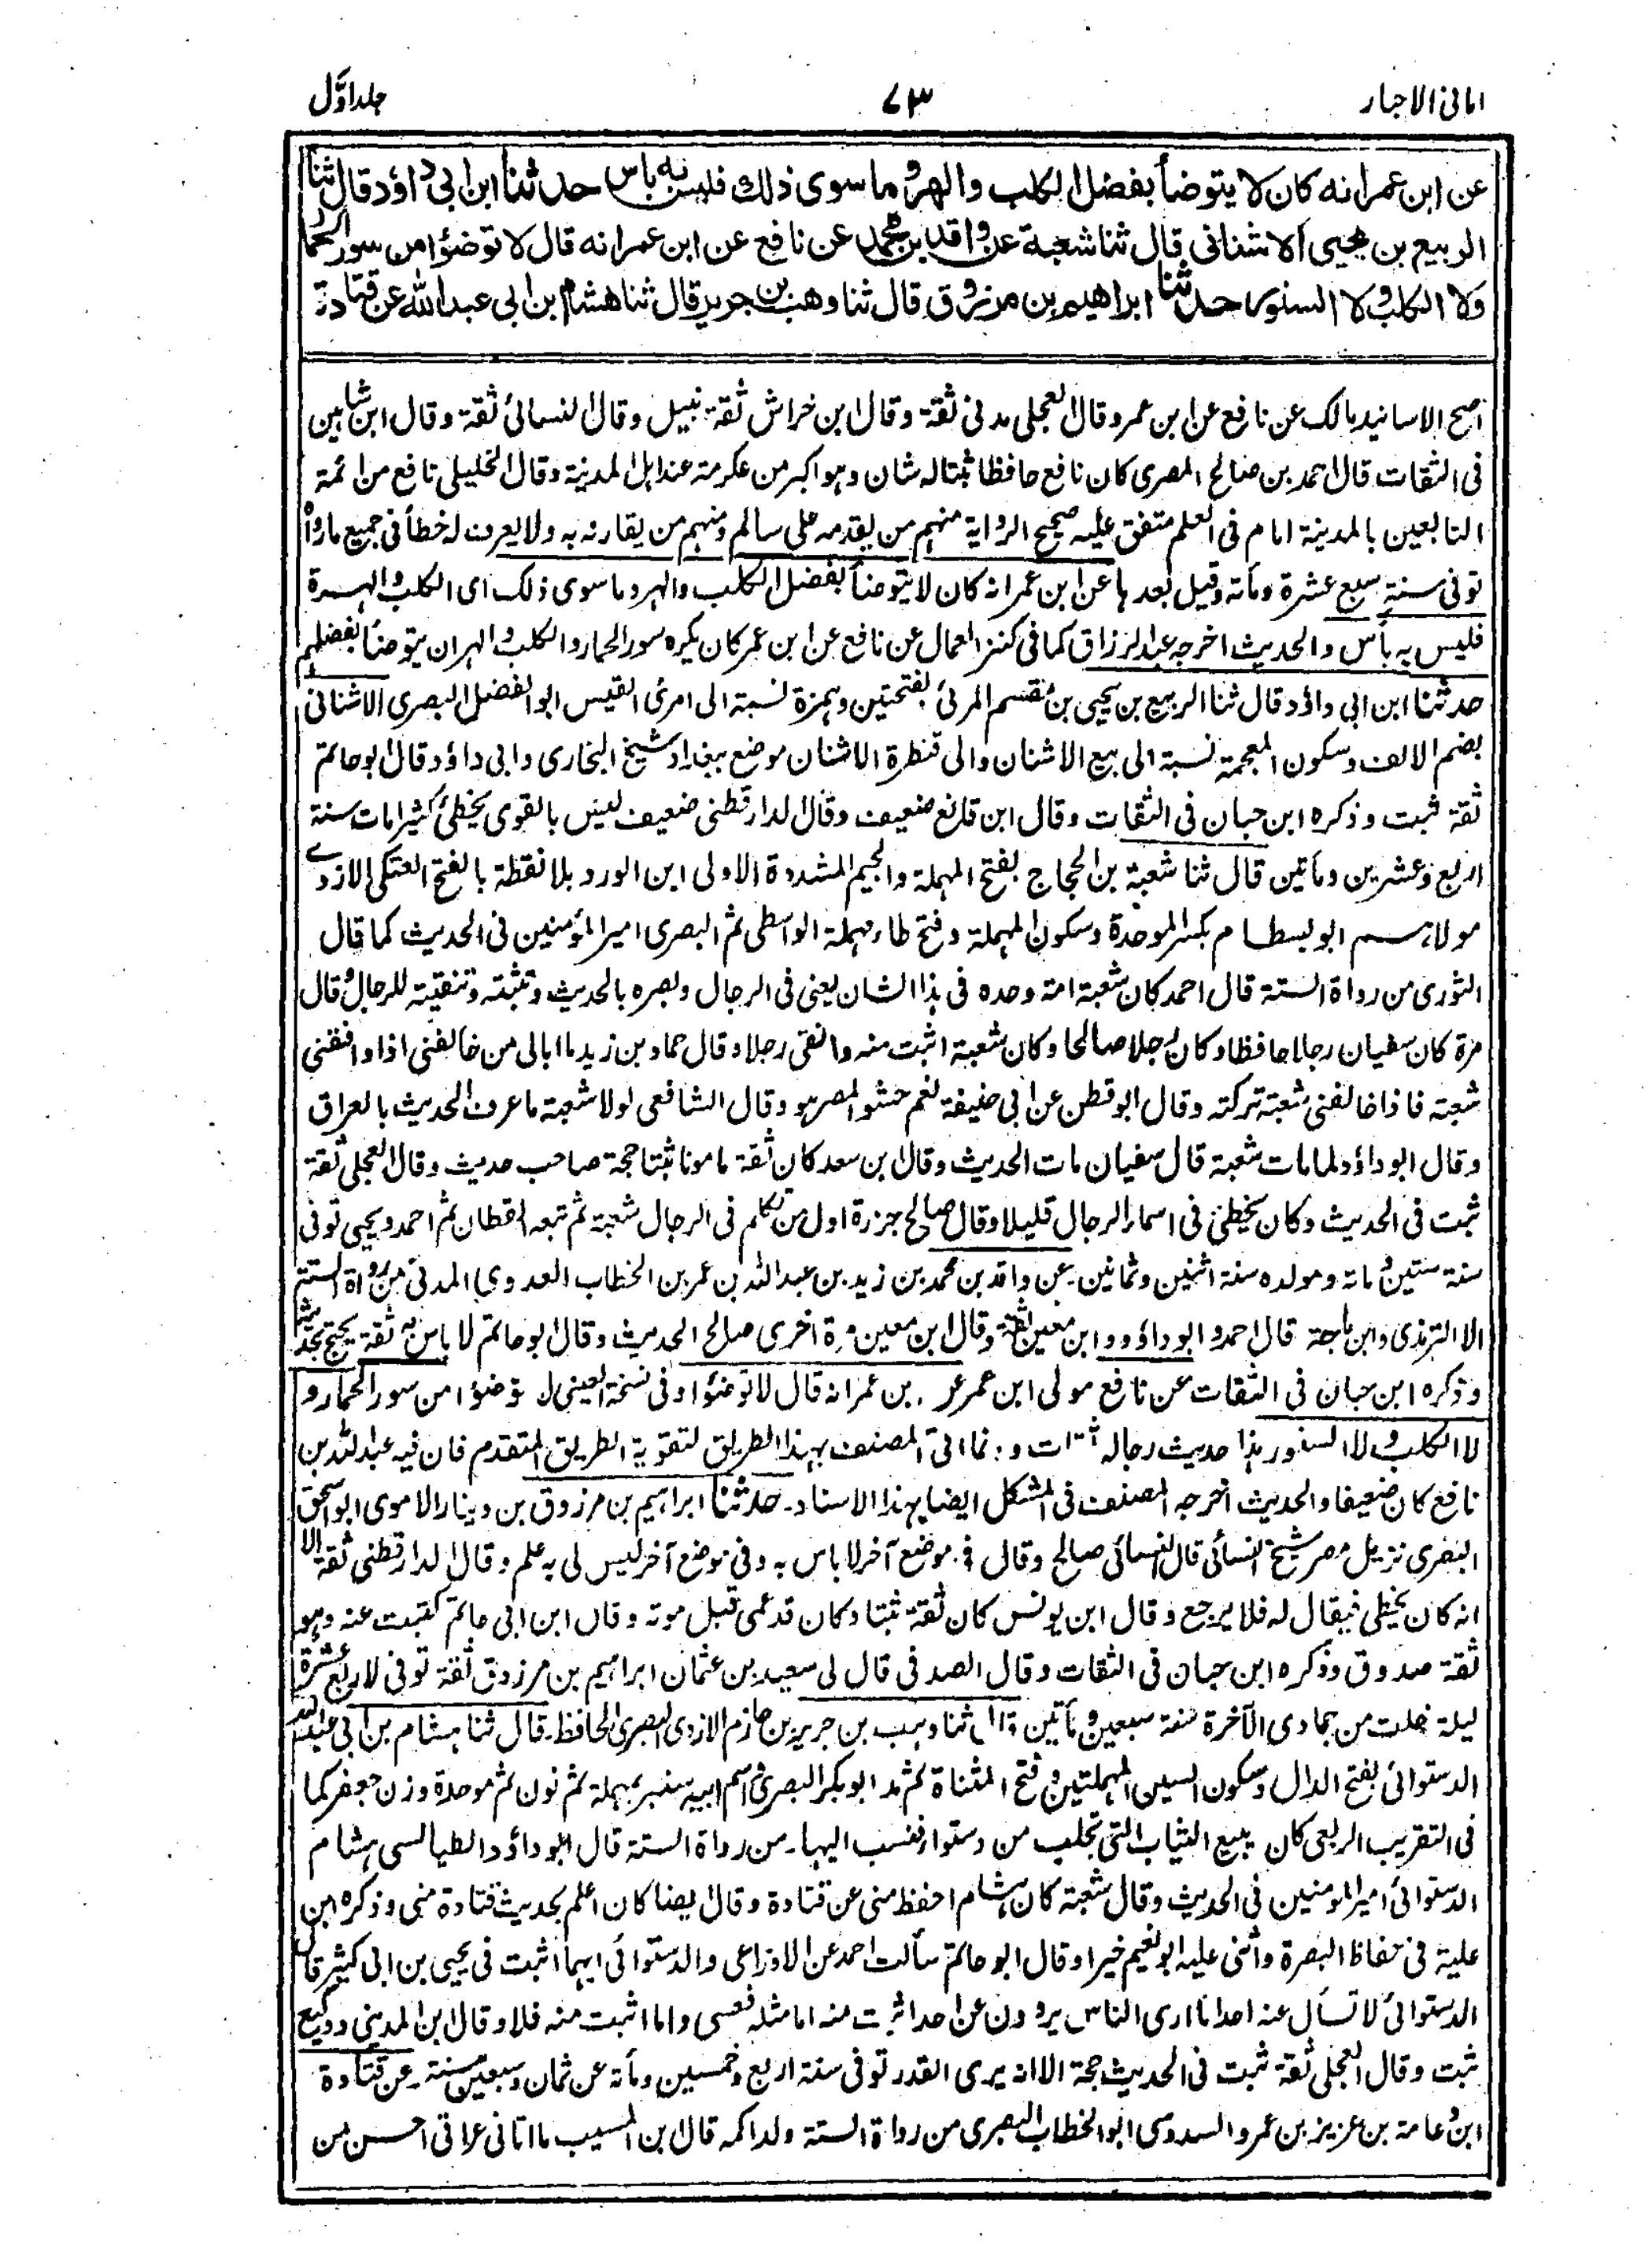 امانی الاحبار ۷۳ جلد اوّل
عن ابن عمر انه كان لا يتوضأ بفضل الكلب والهر وما سوى ذلك فليس به باس حدثنا ابن ابی داؤد قال ثنا
الربيع بن يحيى الاشنانى قال ثنا شعبة عن واقد بن محمد عن نافع عن ابن عمر انه قال لا توضؤا من سور الحمار
ولا الكلب ولا السنور حدثنا ابراهيم بن مرزوق قال ثنا وهب بن جرير قال ثنا هشام بن ابی عبدالله عن قتادة
اصح الاسانيد مالك عن نافع عن ابن عمر وقال العجلی مدنی ثقة وقال ابن خراش ثقة نبيل وقال النسائی ثقة وقال ابن شاہین
فی الثقات قال احمد بن صالح المصری كان نافع حافظا ثبتا له شان وہو اكبر من عكرمة عند اہل المدينة وقال الخليلی نافع من ائمة
التابعين بالمدينة امام فی العلم متفق عليہ صحيح الرواية منہم من يقدمه على سالم ومنہم من يقارنه به ولا يعرف له خطأ فی جميع ما رواه
توفی سنة سبع عشرة ومأته وقيل بعدہا عن ابن عمر انه كان لا يتوضأ بفضل الكلب والہر وما سوى ذلك ای الكلب والہرة
فليس به بأس والحديث اخرجه عبد الرزاق كما فی كنز العمال عن نافع عن ابن عمر كان يكره سور الحمار والكلب والہر ان يتوضأ بفضلہم
حدثنا ابن ابی داؤد قال ثنا الربيع بن يحيى بن مقسم المرئی بفتحتين وہمزة نسبة الى امرئ القيس ابو الفضل البصری الاشنانی
بضم الالف وسكون المعجمة نسبة الى بيع الاشنان والى قنطرة الاشنان موضع ببغداد شيخ البخاری وابی داؤد قال ابو حاتم
ثقة ثبت وذكره ابن حبان فی الثقات وقال ابن قانع ضعيف وقال الدارقطنی ضعيف ليس بالقوی يخطئ كثيرا مات سنة
اربع وعشرين ومأتين قال ثنا شعبة بن الحجاج بفتح المہملة والجيم المشددة الاولى ابن الورد بلا نقطة بالفتح العتكی الازدی
مولاہم ابو بسطام بكسر الموحدة وسكون المہملة وفتح طاء مہملة الواسطی ثم البصری امير المؤمنين فی الحديث كما قال
الثوری من رواة الستة قال احمد كان شعبة امة وحده فی ہذا الشان يعنی فی الرجال وبصره بالحديث وتثبته وتنقيته للرجال وقال
مرة كان سفيان رجلا حافظا وكان رجلا صالحا وكان شعبة اثبت منه وانقى رجلا وقال حماد بن زيد ما ابالی من خالفنی اذا وافقنی
شعبة فاذا خالفنی شعبة تركته وقال ابو قطن عن ابی حنيفة نعم حشو المصر ہو وقال الشافعی لولا شعبة ما عرف الحديث بالعراق
وقال ابو داؤد لما مات شعبة قال سفيان مات الحديث وقال ابن سعد كان ثقة مامونا ثبتا حجة صاحب حديث وقال العجلی ثقة
ثبت فی الحديث وكان يخطئ فی اسماء الرجال قليلا وقال صالح جزرة اول من تكلم فی الرجال شعبة ثم تبعه القطان ثم احمد ويحيى توفی
سنة ستين ومائة ومولده سنة اثنين وثمانين عن واقد بن محمد بن زيد بن عبد الله بن عمر بن الخطاب العدوی المدنی من رواة الستة
الا الترمذی وابن ماجة قال احمد وابو داؤد وابن معين ثقة وقال ابن معين مرة اخرى صالح الحديث وقال ابو حاتم لا باس به ثقة يحتج بحديثه
وذكره ابن حبان فی الثقات عن نافع مولى ابن عمر عن ابن عمر انه قال لا توضؤا وفی نسخة العينی لا توضؤا من سور الحمار و
لا الكلب ولا السنور ہذا حديث رجاله ثقات وانما اتى المصنف بہذا الطريق لتقوية الطريق المتقدم فان فيه عبد الله بن
نافع كان ضعيفا والحديث اخرجه المصنف فی المشكل ايضا بہذا الاسناد۔ حدثنا ابراہيم بن مرزوق بن دينار الاموی ابو اسحق
البصری نزيل مصر شيخ النسائی قال النسائی صالح وقال فی موضع آخر لا باس به وفی موضع آخر ليس لی به علم وقال الدارقطنی ثقة الا
انه كان يخطی فيقال له فلا يرجع وقال ابن يونس كان ثقة ثبتا وكان قد عمی قبل موته وقال ابن ابی حاتم كتبت عنه وہو
ثقة صدوق وذكره ابن حبان فی الثقات وقال الصدفی قال لی سعيد بن عثمان ابراہيم بن مرزوق ثقة توفی لاربع عشرة
ليلة خلت من جمادى الآخرة سنة سبعين ومأتين قال ثنا وہب بن جرير بن حازم الازدی البصری الحافظ۔ قال ثنا ہشام بن ابی عبد الله
الدستوائی بفتح الدال وسكون السين المہملتين وفتح المثناة ثم مد ابو بكر البصری اسم ابيہ سنبر بمہملة ثم نون ثم موحدة وزن جعفر كما
فی التقريب الربعی كان يبيع الثياب التی تجلب من دستوا فنسب اليہا۔ من رواة الستة قال ابو داؤد الطيالسی ہشام
الدستوائی امير المومنين فی الحديث وقال شعبة كان ہشام احفظ منی عن قتادة وقال ايضا كان اعلم بحديث قتادة منی وذكره ابن
علية فی حفاظ البصرة واثنى عليه ابو نعيم خيرا وقال ابو حاتم سألت احمد عن الاوزاعی والدستوائی ايہما اثبت فی يحيى بن ابی كثير قال
الدستوائی لا تسأل عنه احدا ما ارى الناس يروون عن احد اثبت منه اما مثله فعسى واما اثبت منه فلا وقال ابن المدينی ووكيع
ثبت وقال العجلی ثقة ثبت فی الحديث حجة الا انه يرى القدر توفی سنة اربع وخمسين ومأة عن ثمان وسبعين سنة۔ عن قتادة
ابن دعامة بن عزيز بن عمرو السدوسی ابو الخطاب البصری من رواة الستة ولد اكمه قال ابن المسيب ما اتانی عراقی احسن من